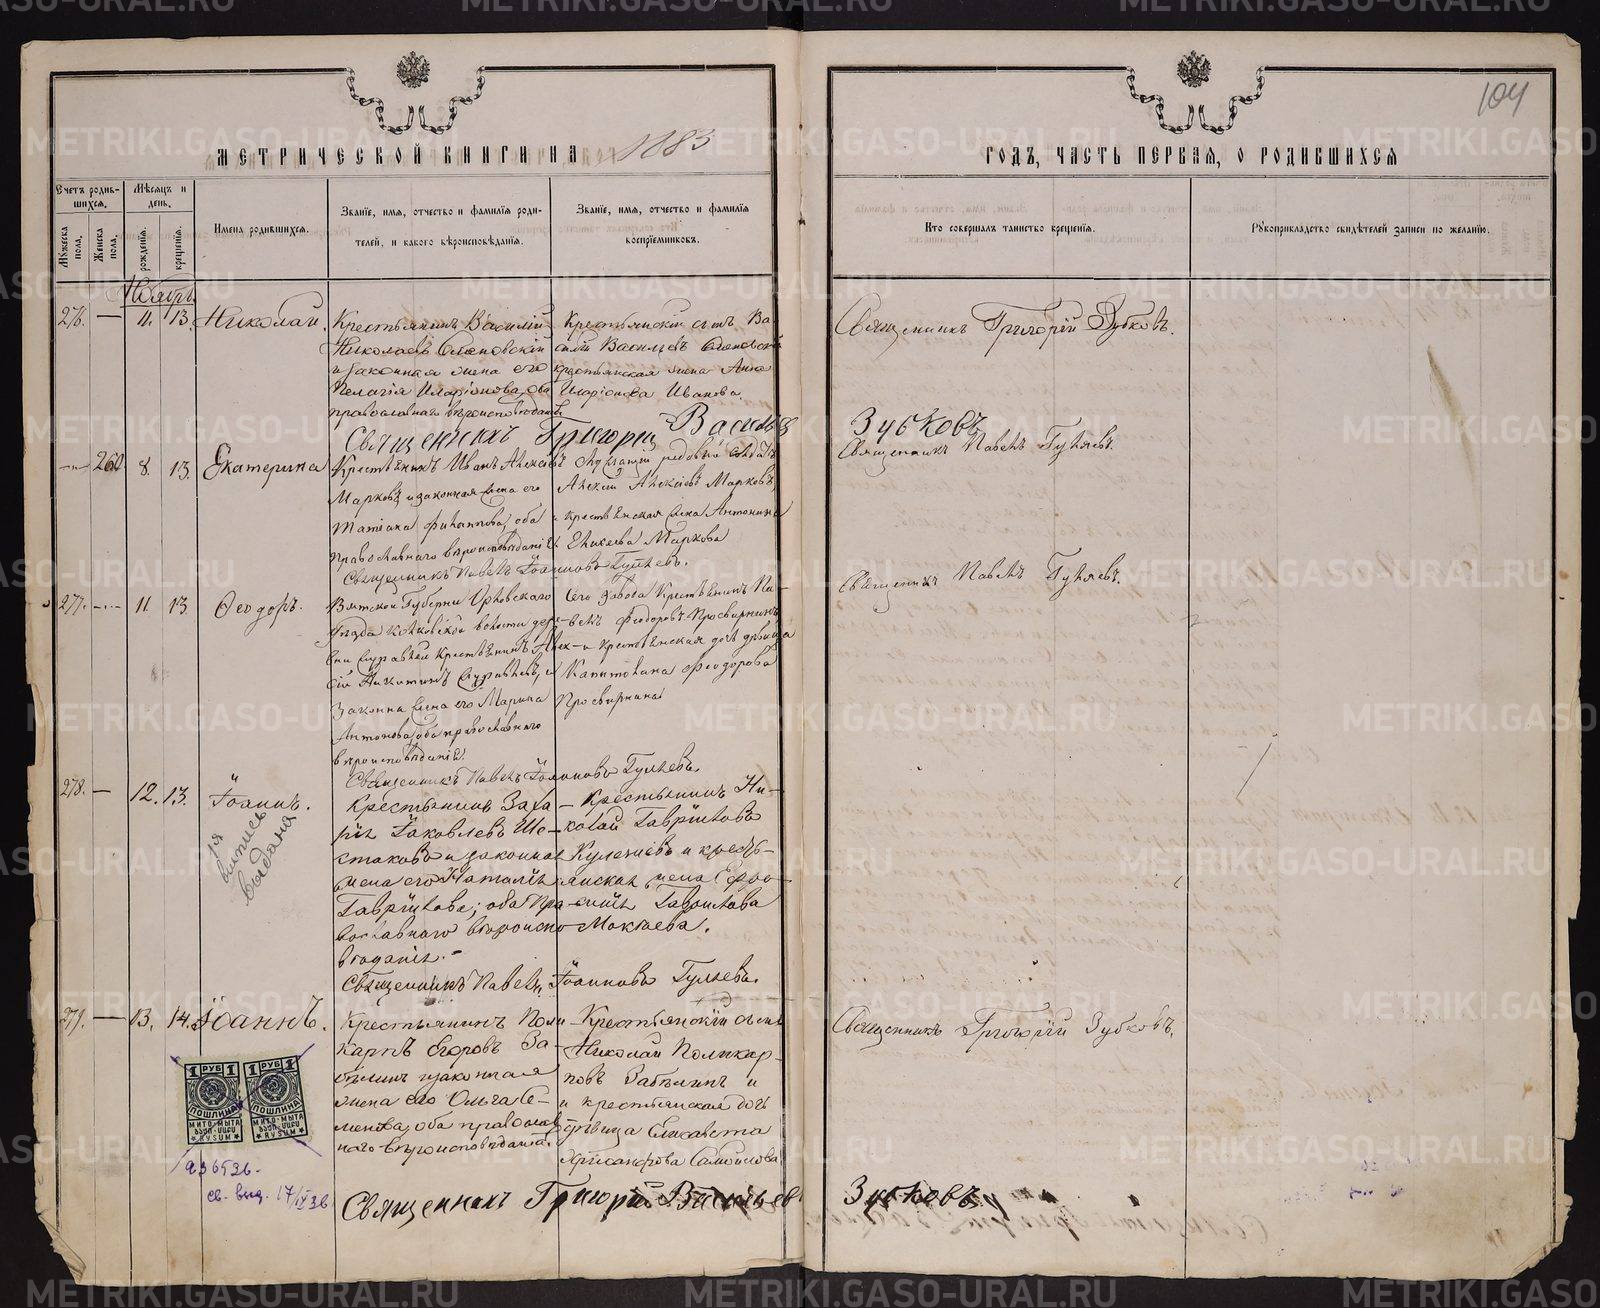 МЕТРИЧЕСКОЙ КНИГИ НА 1883
ГОДЪ, ЧАСТЬ ПЕРВАЯ, О РОДИВШИХСЯ
104
Счетъ родив-
шихся.
Мѣсяцъ и
день.
Мужеска пола.
Женска пола.
рожденія.
крещенія.
Имена родившихся.
Званіе, имя, отчество и фамилія роди-
телей, и какого вѣроисповѣданія.
Званіе, имя, отчество и фамилія
воспріемниковъ.
Кто совершалъ таинство крещенія.
Рукоприкладство свидѣтелей записи по желанію.
Ноябрь.
276. — 11. 13. Николай.
Крестьянинъ Василій
Николаевъ
и законная жена его
Пелагія Иларіонова, оба
православнаго вѣроисповѣданія
Крестьянскій сынъ Ва-
силій Васильевъ
крестьянская жена Анна
Иларіонова Иванова.
Священникъ Григорій Зубковъ.
Священникъ Григорій Васильевъ Зубковъ
— 260 8. 13. Екатерина
Крестьянинъ Иванъ Алексѣевъ
Марковъ и законная жена его
Татіана Филиппова, оба
православнаго вѣроисповѣданія
Служащій рядовый солдатъ
Алексѣй Алексѣевъ Марковъ,
и крестьянская жена Антонина
Маркова
Священникъ Павелъ Гуляевъ.
Священникъ Павелъ Іоанновъ Гуляевъ.
277. — 11 13 Ѳеодоръ.
Вятской Губерніи Орловскаго
уѣзда волости дере-
вни крестьянинъ Алек-
сѣй Никитинъ и
законная жена его Марина
Антонова, оба православнаго
вѣроисповѣданія.
Сего завода крестьянинъ Па-
велъ Феодоровъ Просвирнинъ
и крестьянская дочь дѣвица
Капитолина Феодорова
Просвирнина
Священникъ Павелъ Гуляевъ.
Священникъ Павелъ Іоанновъ Гуляевъ
278. — 12. 13. Іоаннъ.
1я
выпись
выдана
Крестьянинъ Заха-
рія Іаковлевъ Ше-
стаковъ и законная
жена его Наталія
Гавріилова; оба пра-
вославнаго вѣроиспо-
вѣданія. -
Крестьянинъ Ни-
колай Гавріиловъ
и кресть-
янская жена Евфро-
синія Гавріилова
Мокѣева.
Священникъ Павелъ Іоанновъ Гуляевъ.
279. — 13. 14. Іоаннъ.
Крестьянинъ Поли-
карпъ Егоровъ За-
бѣлинъ и законная
жена его Ольга Се-
менова, оба православ-
наго вѣроисповѣданія.
Крестьянскій сынъ
Николай Поликар-
повъ Забѣлинъ и
и крестьянская дочь
дѣвица Елисавета
Хрисанфова Самойлова.
Священникъ Григорій Зубковъ.
1 РУБ 1 1 РУБ 1
ПОШЛИНА ПОШЛИНА
МИТО·МЫТА МИТО·МЫТА
RYSUM RYSUM
936536-
св. выд. 17/IX 36
Священникъ Григорій Васильевъ Зубковъ
METRIKI.GASO-URAL.RU